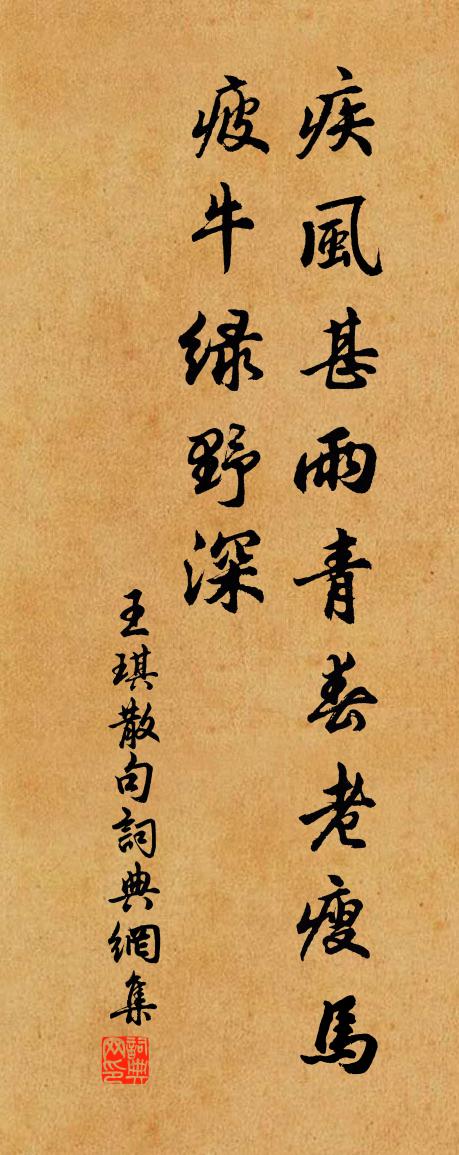 疾風甚雨青春老瘦馬
疲牛綠野深
王琪散句詞典網集
詞典網印